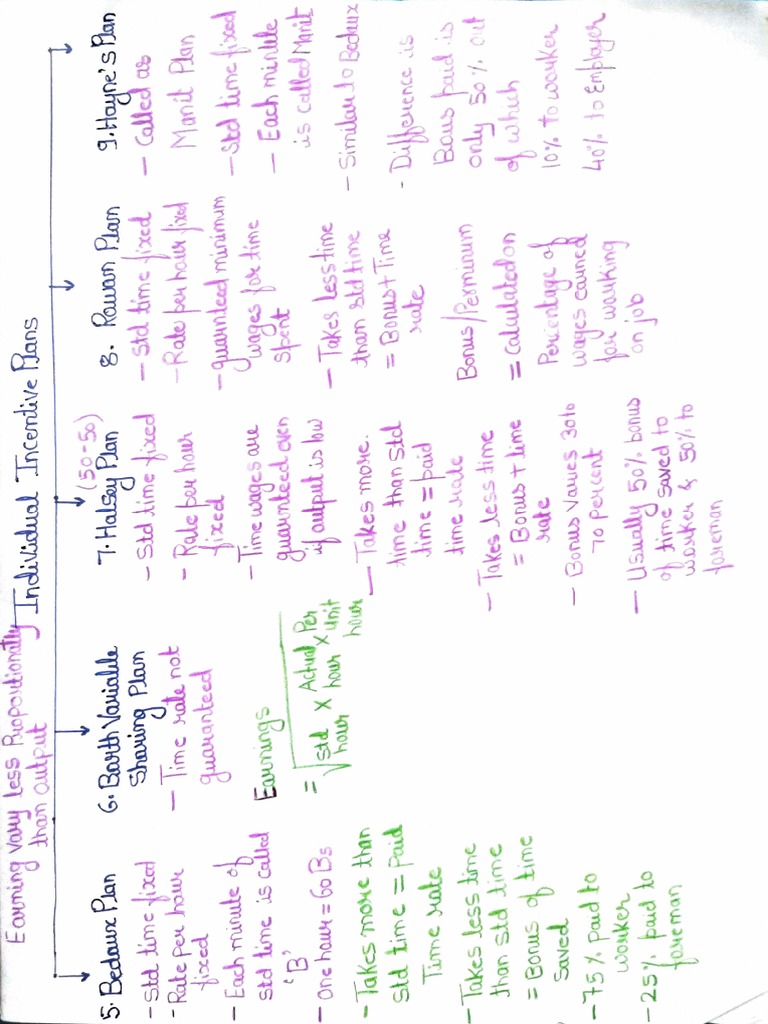 Earning vary less Proportionally
than output
Individual Incentive Plans
5. Bedaux Plan
- Std time fixed
- Rate per hour
fixed
- Each minute of
std time is called
'B'
- One hour = 60 Bs
- Takes more than
std time = Paid
Time rate
- Takes less time
than std time
= Bonus of time
saved
- 75% Paid to
worker
- 25% paid to
foreman
6. Barth Variable
Sharing Plan
- Time rate not
guaranteed
Earnings
= √ Std hour × Actual hour × Per unit hour
(50-50)
7. Halsay Plan
- Std time fixed
- Rate per hour
fixed
- Time wages are
guaranteed even
if output is low
- Takes more.
time than std
time = paid
time rate
- Takes less time
= Bonus + time
rate
- Bonus varies 30 to
70 percent
- Usually 50% bonus
of time saved to
worker & 50% to
foreman
8. Rowan Plan
- Std time fixed
- Rate per hour fixed
- guarnteed minimum
wages for time
spent
- Takes less time
than std time
= Bonus + Time
rate
Bonus/Perminum
= Calculated on
Percentage of
wages earned
for working
on job
9. Hayne's Plan
- Called as
Manit Plan
- Std time fixed
- Each minute
is called Manit
- Similar to Bedeux
- Difference is
Bonus paid is
only 50% out
of which
10% to worker
40% to Employer